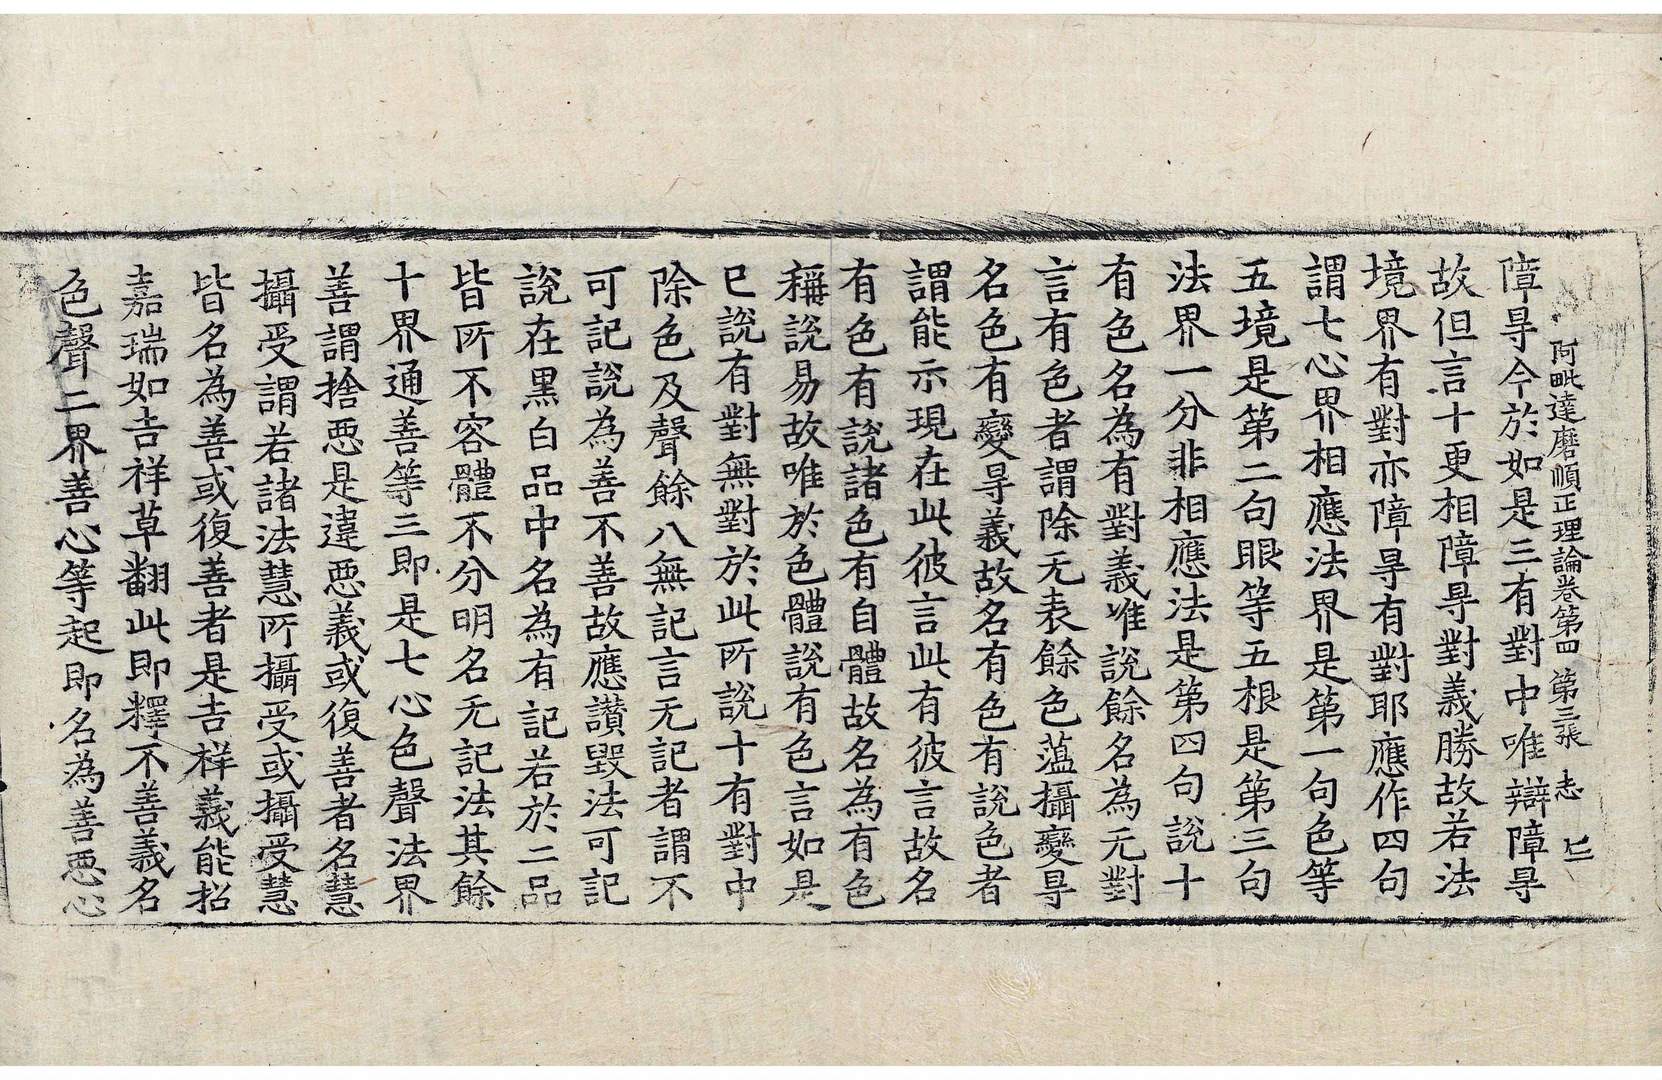 阿毗達磨順正理論卷第四 第三張 志
障㝵今於如是三有對中唯辯障㝵
故但言十更相障㝵對義勝故若法
境界有對亦障㝵有對耶應作四句
謂七心界相應法界是第一句色等
五境是第二句眼等五根是第三句
法界一分非相應法是第四句說十
有色名為有對義唯說餘名為无對
言有色者謂除无表餘色蘊攝變㝵
名色有變㝵義故名有色有說色者
謂能示現在此彼言此有彼言故名
有色有說諸色有自體故名為有色
稱說易故唯於色體說有色言如是
已說有對無對於此所說十有對中
除色及聲餘八無記言无記者謂不
可記說為善不善故應讚毀法可記
說在黑白品中名為有記若於二品
皆所不容體不分明名无記法其餘
十界通善等三即是七心色聲法界
善謂捨惡是違惡義或復善者名慧
攝受謂若諸法慧所攝受或攝受慧
皆名為善或復善者是吉祥義能招
嘉瑞如吉祥草翻此即釋不善義名
色聲二界善心等起即名為善惡心